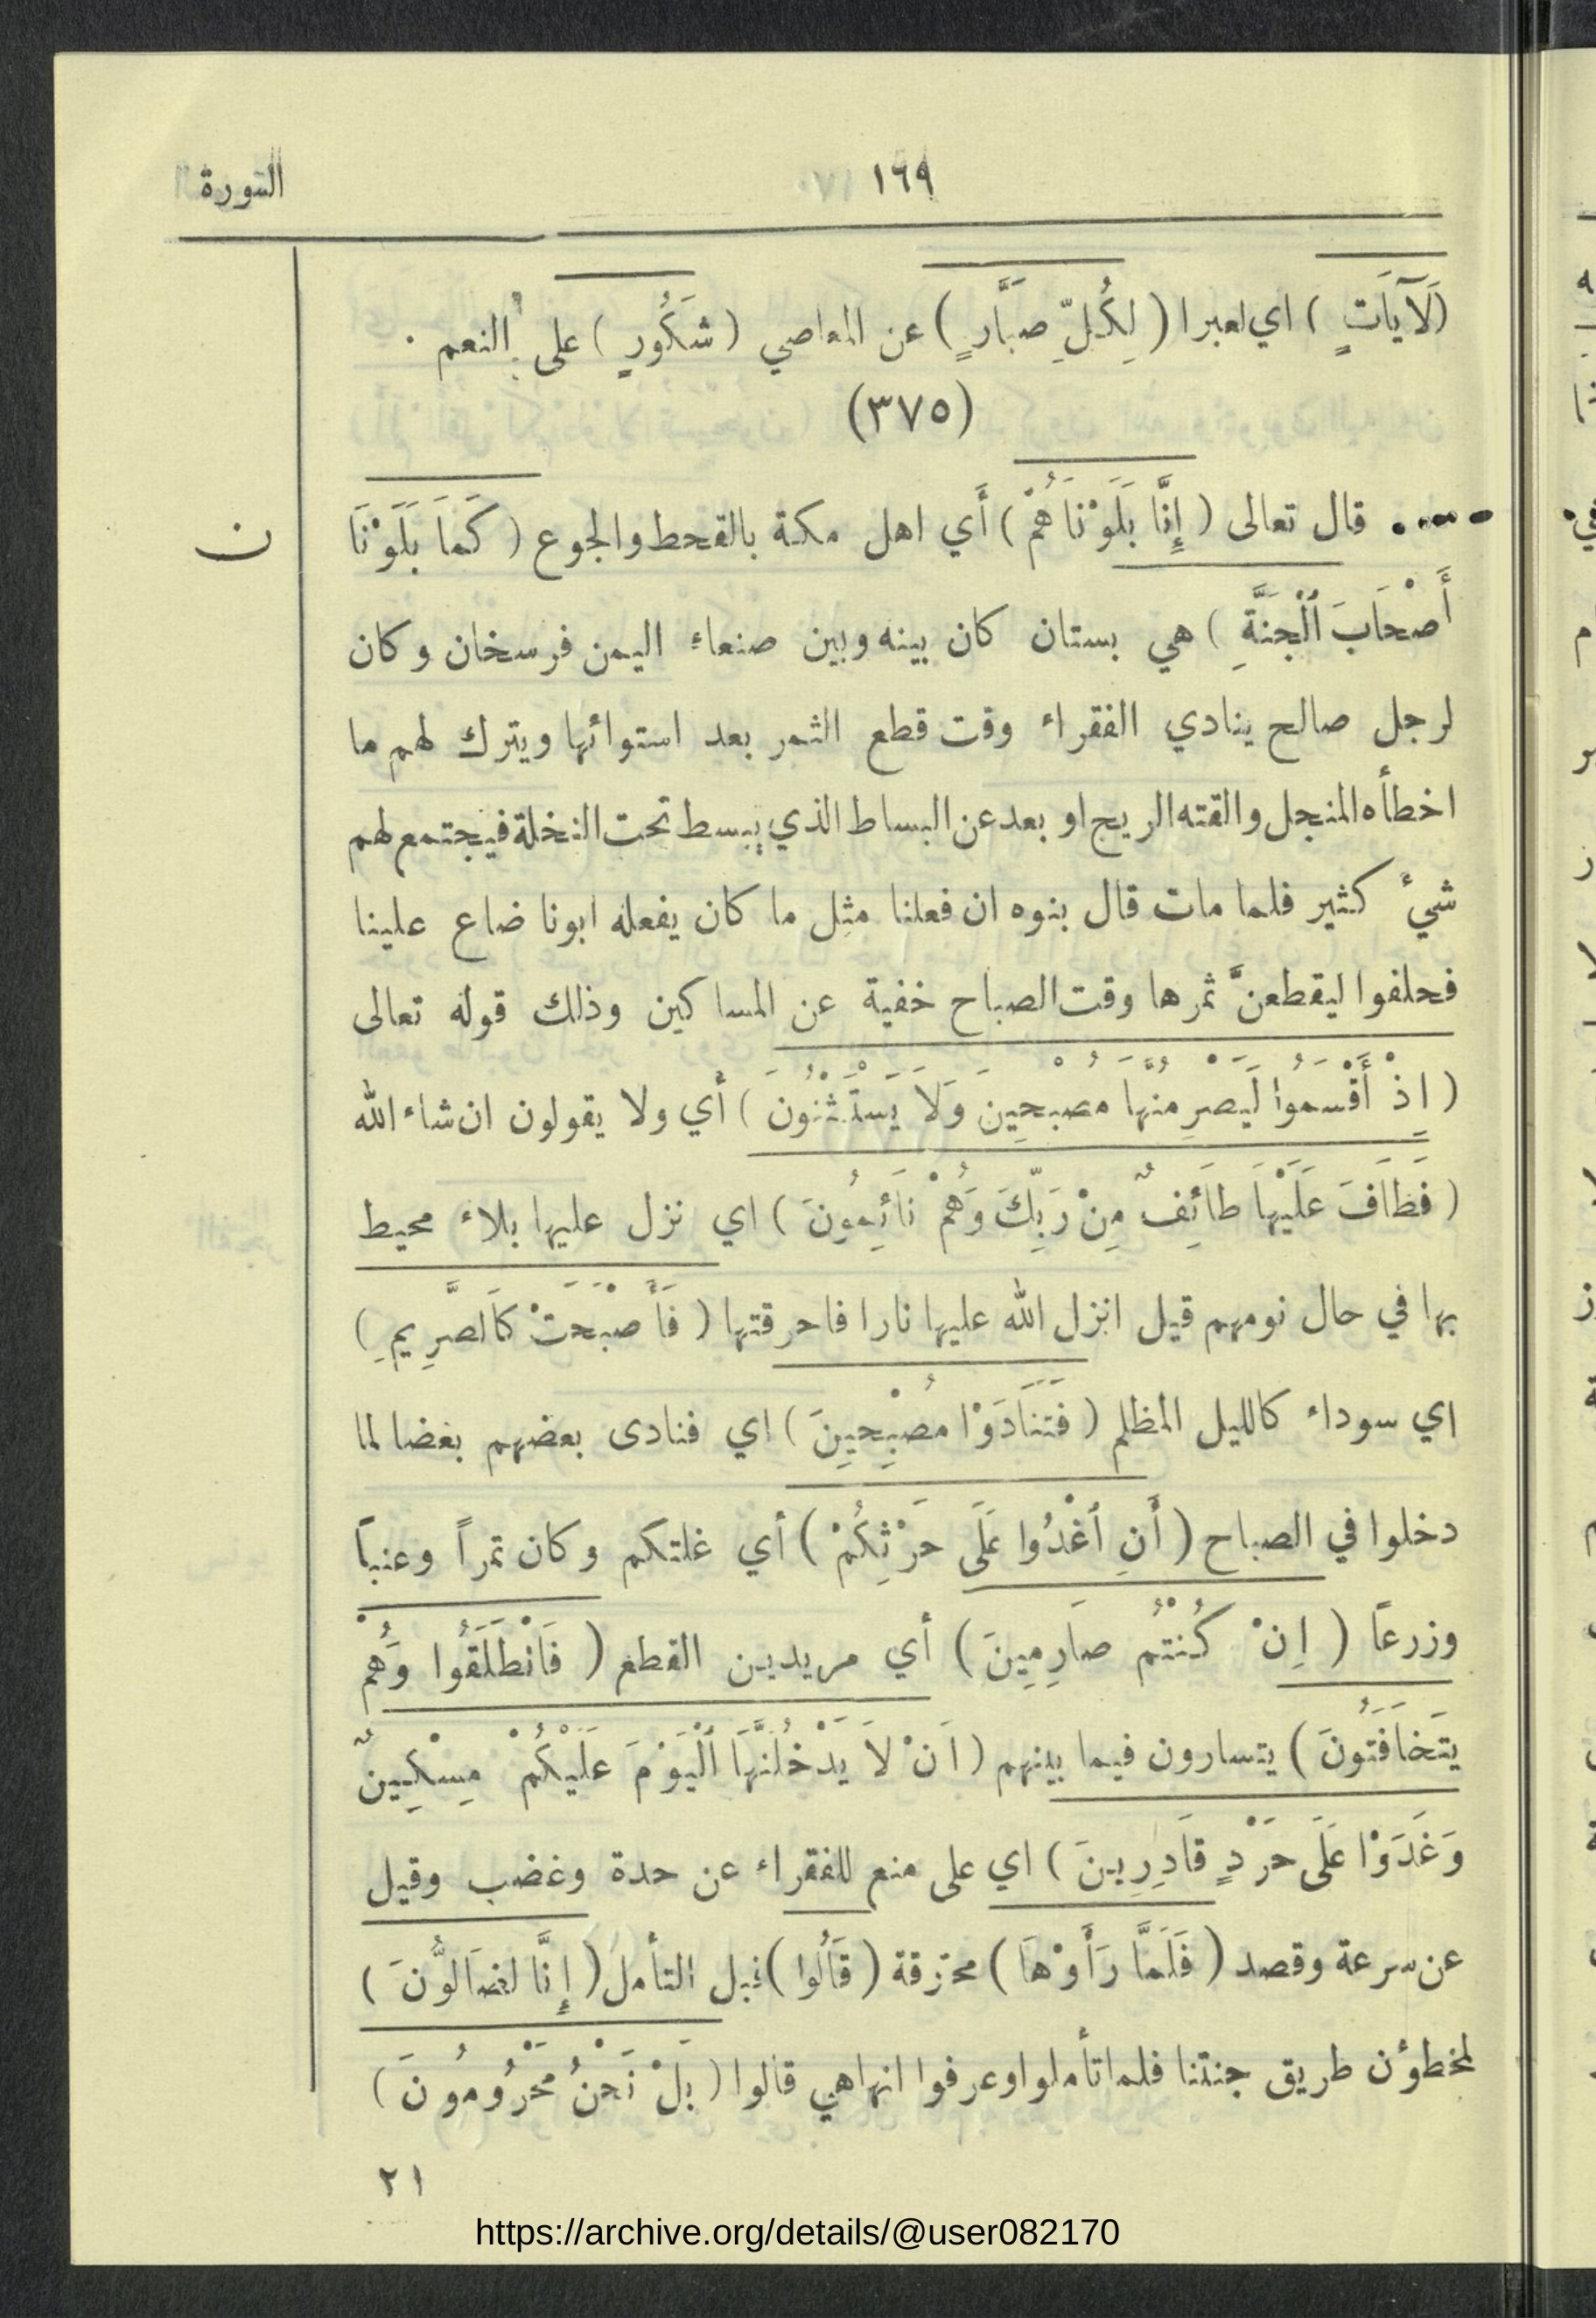 ١٦٩
السورة
(لَآيَاتٍ ) اي لعبرا ( لِكُلِّ صَبَّارٍ ) عن المعاصي ( شَكُورٍ ) على النعم .
(٣٧٥)
قال تعالى ( إِنَّا بَلَوْنَاهُمْ ) أَي اهل مكة بالقحط والجوع ( كَمَا بَلَوْنَا
ن
أَصْحَابَ ٱلْجَنَّةِ ) هي بستان كان بينه وبين صنعاء اليمن فرسخان وكان
لرجل صالح ينادي الفقراء وقت قطع الثمر بعد استوائها ويترك لهم ما
اخطأه المنجل والقته الريح او بعد عن البساط الذي يبسط تحت النخلة فيجتمع لهم
شيءٌ كثير فلما مات قال بنوه ان فعلنا مثل ما كان يفعله ابونا ضاع علينا
فحلفوا ليقطعنَّ ثمرها وقت الصباح خفية عن المساكين وذلك قوله تعالى
( إِذْ أَقْسَمُوا لَيَصْرِمُنَّهَا مُصْبِحِينَ وَلَا يَسْتَثْنُونَ ) أي ولا يقولون ان شاء الله
( فَطَافَ عَلَيْهَا طَائِفٌ مِنْ رَبِّكَ وَهُمْ نَائِمُونَ ) اي نزل عليها بلاء محيط
بها في حال نومهم قيل انزل الله عليها نارا فاحرقتها ( فَأَصْبَحَتْ كَالصَّرِيمِ )
اي سوداء كالليل المظلم ( فَتَنَادَوْا مُصْبِحِينَ ) اي فنادى بعضهم بعضا لما
دخلوا في الصباح ( أَنِ ٱغْدُوا عَلَى حَرْثِكُمْ ) أي غلتكم وكان تمراً وعنباً
وزرعاً ( اِنْ كُنْتُمْ صَارِمِينَ ) أي مريدين القطع ( فَانْطَلَقُوا وَهُمْ
يَتَخَافَتُونَ ) يتسارون فيما بينهم ( اَنْ لَا يَدْخُلَنَّهَا ٱلْيَوْمَ عَلَيْكُمْ مِسْكِينٌ
وَغَدَوْا عَلَى حَرْدٍ قَادِرِينَ ) اي على منع للفقراء عن حدة وغضب وقيل
عن سرعة وقصد ( فَلَمَّا رَأَوْهَا ) محترقة ( قَالُوا ) قبل التأمل ( إِنَّا لَضَالُّونَ )
لمخطؤن طريق جنتنا فلما تأملوا وعرفوا انها هي قالوا ( بَلْ نَحْنُ مَحْرُومُونَ )
٢١
https://archive.org/details/@user082170